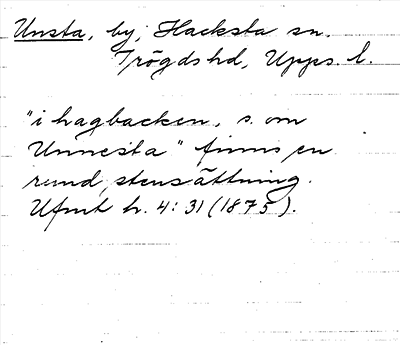 Unsta, by, Hacksta sn.
Trögds hd, Upps. l.
"i hagbacken, s. om
Unnesta" finns en
rund stensättning.
Ufmt h. 4:31 (1875).